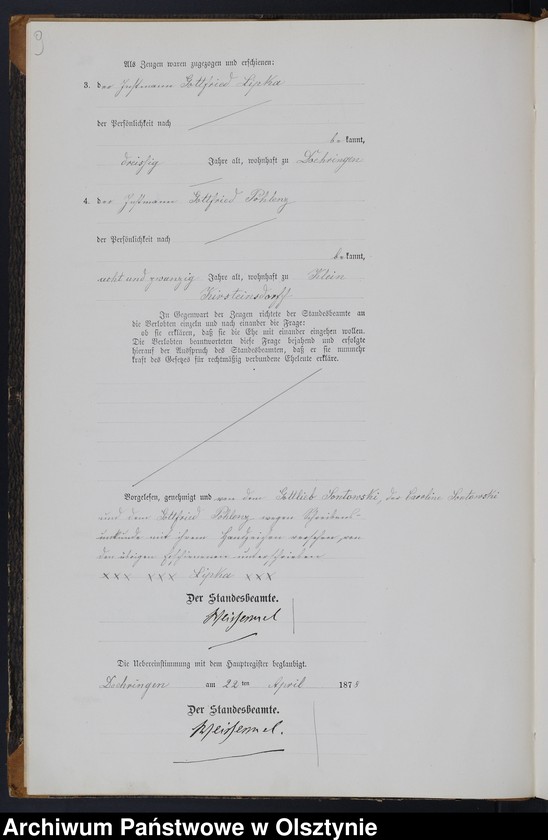 9
Als Zeugen waren zugezogen und erschienen:
3. der Instmann Gottfried Lipka
der Persönlichkeit nach
be kannt,
dreissig Jahre alt, wohnhaft zu Doehringen
4. der Instmann Gottfried Pohlenz
der Persönlichkeit nach
be kannt,
acht und zwanzig Jahre alt, wohnhaft zu Klein
Kirsteinsdorff
In Gegenwart der Zeugen richtete der Standesbeamte an
die Verlobten einzeln und nach einander die Frage:
ob sie erklären, daß sie die Ehe mit einander eingehen wollen.
Die Verlobten beantworteten diese Frage bejahend und erfolgte
hierauf der Ausspruch des Standesbeamten, daß er sie nunmehr
kraft des Gesetzes für rechtmäßig verbundene Eheleute erkläre.
Vorgelesen, genehmigt und von dem Gottlieb Sontowski, der Caroline Sontowski
und dem Gottfried Pohlenz wegen Schreibens-
unkunde mit ihrem Handzeichen versehen, von
den übrigen Erschienenen unterschrieben
xxx xxx Lipka xxx
Der Standesbeamte.
Weissermel
Die Uebereinstimmung mit dem Hauptregister beglaubigt.
Doehringen am 22 ten April 1878
Der Standesbeamte.
Weissermel.
Archiwum Państwowe w Olsztynie